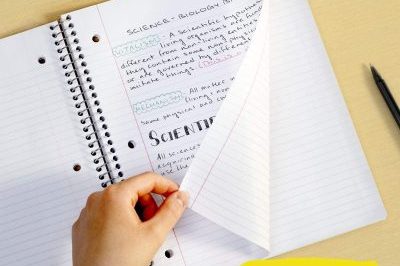 SCIENCE - BIOLOGY
VITALISM - A scientific hypothes
living organisms are fund
different from non-living entities
they contain some non-physic
or are governed by different
imitate things. (This is
MECHANISM - All matter
living, non
same physical and ch
SCIENTIF
All science
acquiring
use the